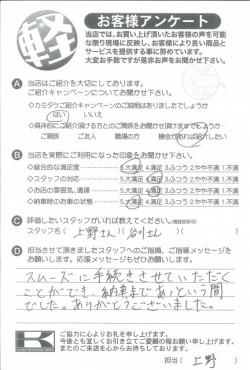 軽
お客様アンケート
当店では、お買い上げ頂いたお客様の声を可能
な限り現場に反映し、お客様により良い商品と
サービスを提供する事に努めています。
大変お手数ですが是非お声をお聞かせ下さい。
A 当店はご紹介を大切にしております。
ご紹介キャンペーンについてお聞かせ下さい。
はい いいえ
ご親戚 ご友人 職場の方
B 当店を実際にご利用になった印象をお聞かせ下さい。
◇総合的な満足度 5.大満足 4.満足 3.ふつう 2.やや不満 1.不満
◇スタッフの対応 5.大満足 4.満足 3.ふつう 2.やや不満 1.不満
◇お店の雰囲気,清掃 5.大満足 4.満足 3.ふつう 2.やや不満 1.不満
◇納車時のお車の状態 5.大満足 4.満足 3.ふつう 2.やや不満 1.不満
C 評価したいスタッフがいれば教えてください。(複数回答可)
スタッフ名( 上野さん 谷川さん )
D 担当させて頂きましたスタッフへのご指摘、ご指導メッセージを
お願いします。応援メッセージもぜひお願いします。
スムーズに手続きさせていただく
ことができ、納車まであっという間
でした。ありがとうございました。
K
ご協力に心よりお礼を申し上げます。
今後とも宜しくお引き立てご愛顧の程お願い申し上げます。
またのご来店を心からお待ちしております。
担当( 上野 )